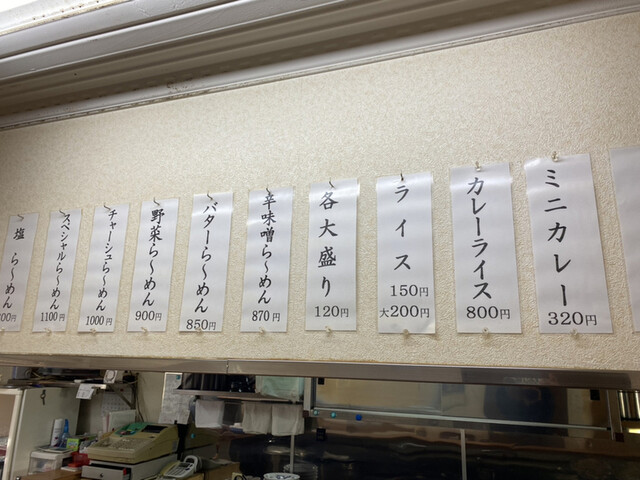 塩 ら〜めん
00円
スペシャルら〜めん
1100円
チャーシュら〜めん
1000円
野菜ら〜めん
900円
バターら〜めん
850円
辛味噌ら〜めん
870円
各大盛り
120円
ライス
150円
大200円
カレーライス
800円
ミニカレー
320円